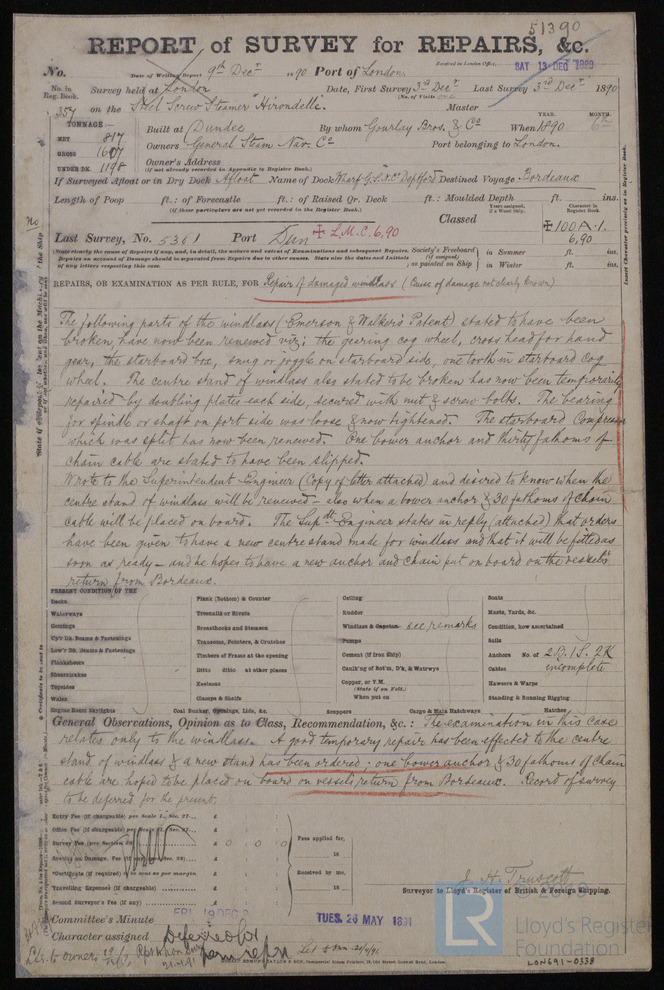 51390
REPORT of SURVEY for REPAIRS, &c.
No. Date of Writing Report 9th Decr 1890 Port of London Received in London Office, SAT 13 DEC 1890
No. in Reg. Book. Survey held at London Date, First Survey 3rd Decr Last Survey 3rd Decr 1890
(No. of Visits one)
357 on the Steel Screw Steamer "Hirondelle" Master
TONNAGE— YEAR. MONTH.
NET 817 Built at Dundee By whom Gourlay Bros. & Co When 1890 6th
GROSS 1607 Owners General Steam Nav. Co Port belonging to London.
UNDER DK. 1198 Owner's Address
(if not already recorded in Appendix to Register Book.)
If Surveyed Afloat or in Dry Dock Afloat Name of Dock Wharf G.S.N.Co Deptford Destined Voyage Bordeaux
Length of Poop ft.: of Forecastle ft.: of Raised Qr. Deck ft.: Moulded Depth ft. ins.
(If these particulars are not yet recorded in the Register Book.)
Years assigned, if a Wood Ship. Character in Register Book.
Classed ✠100.A.1.
6,90
Last Survey, No. 5301 Port Dun ✠ L.M.C. 6,90
Society's Freeboard (if compact) as painted on Ship in Summer ft. ins.
in Winter ft. ins.
REPAIRS, OR EXAMINATION AS PER RULE, FOR Repairs of damaged windlass (Cause of damage not clearly known)
The following parts of the windlass (Emerson & Walker's Patent) stated to have been
broken, have now been renewed viz; the gearing cog wheel, cross head for hand
gear, the starboard box, snug or joggle on starboard side, one tooth in starboard cog
wheel. The centre stand of windlass also stated to be broken has now been temporarily
repaired by doubling plates each side, secured with nut & screw bolts. The bearing
for spindle or shaft on port side was loose & now tightened. The starboard Compressor
which was split has now been renewed. One bower anchor and thirty fathoms of
chain cable are stated to have been slipped.
Wrote to the Superintendent Engineer (Copy of letter attached) and desired to know when the
centre stand of windlass will be renewed – also when a bower anchor & 30 fathoms of chain
cable will be placed on board. The Supdt Engineer states in reply (attached) that orders
have been given to have a new centre stand made for windlass and that it will be fitted as
soon as ready – and he hopes to have a new anchor and chain put on board on the vessel's
return from Bordeaux.
PRESENT CONDITION OF THE
Decks
Waterways
Comings
Up'r Dk. Beams & Fastenings
Low'r Dk. Beams & Fastenings
Planksheers
Sheerstrakes
Topsides
Wales
Engine Room Skylights
Plank (Bottom) & Counter
Treenails or Rivets
Breasthooks and Stemson
Transoms, Pointers, & Crutches
Timbers of Frame at the opening
Ditto ditto at other places
Keelsons
Clamps & Shelfs
Coal Bunker, Openings, Lids, &c.
Ceiling
Rudder
Windlass & Capstan see remarks
Pumps
Cement (if Iron Ship)
Caulk'ng of Bot'm, D'k, & Watrwys
Copper, or Y.M.
(State if on Felt.)
When put on
Scuppers
Cargo & Main Hatchways
Boats
Masts, Yards, &c.
Condition, how ascertained
Sails
Anchors No. of 2B. 1S. 2K
Cables incomplete
Hawsers & Warps
Standing & Running Rigging
Hatches
General Observations, Opinion as to Class, Recommendation, &c.: The examination in this case
relates only to the windlass. A good temporary repair has been effected to the centre
stand of windlass & a new stand has been ordered; one bower anchor & 30 fathoms of chain
cable are hoped to be placed on board on vessels return from Bordeaux. Record of survey
to be deferred for the present.
Entry Fee (if chargeable) per Scale I., Sec. 27... £
Office Fee (if chargeable) per Scale II., Sec. 27... £
Survey Fee (per Section 28) £ 0 0 0
Special or Damage, Fee (if £
*Certificate (if required) £
Travelling Expenses (if chargeable) £
Second Surveyor's Fee (if any) £
Fees applied for,
18
Received by me,
18
J. H. Truscott
Surveyor to Lloyd's Register of British & Foreign Shipping.
Committee's Minute FRI 19 DEC TUES. 26 MAY 1891
Character assigned Deferred for
LR
© 2019
Lloyd's Register
Foundation
LON691-0338